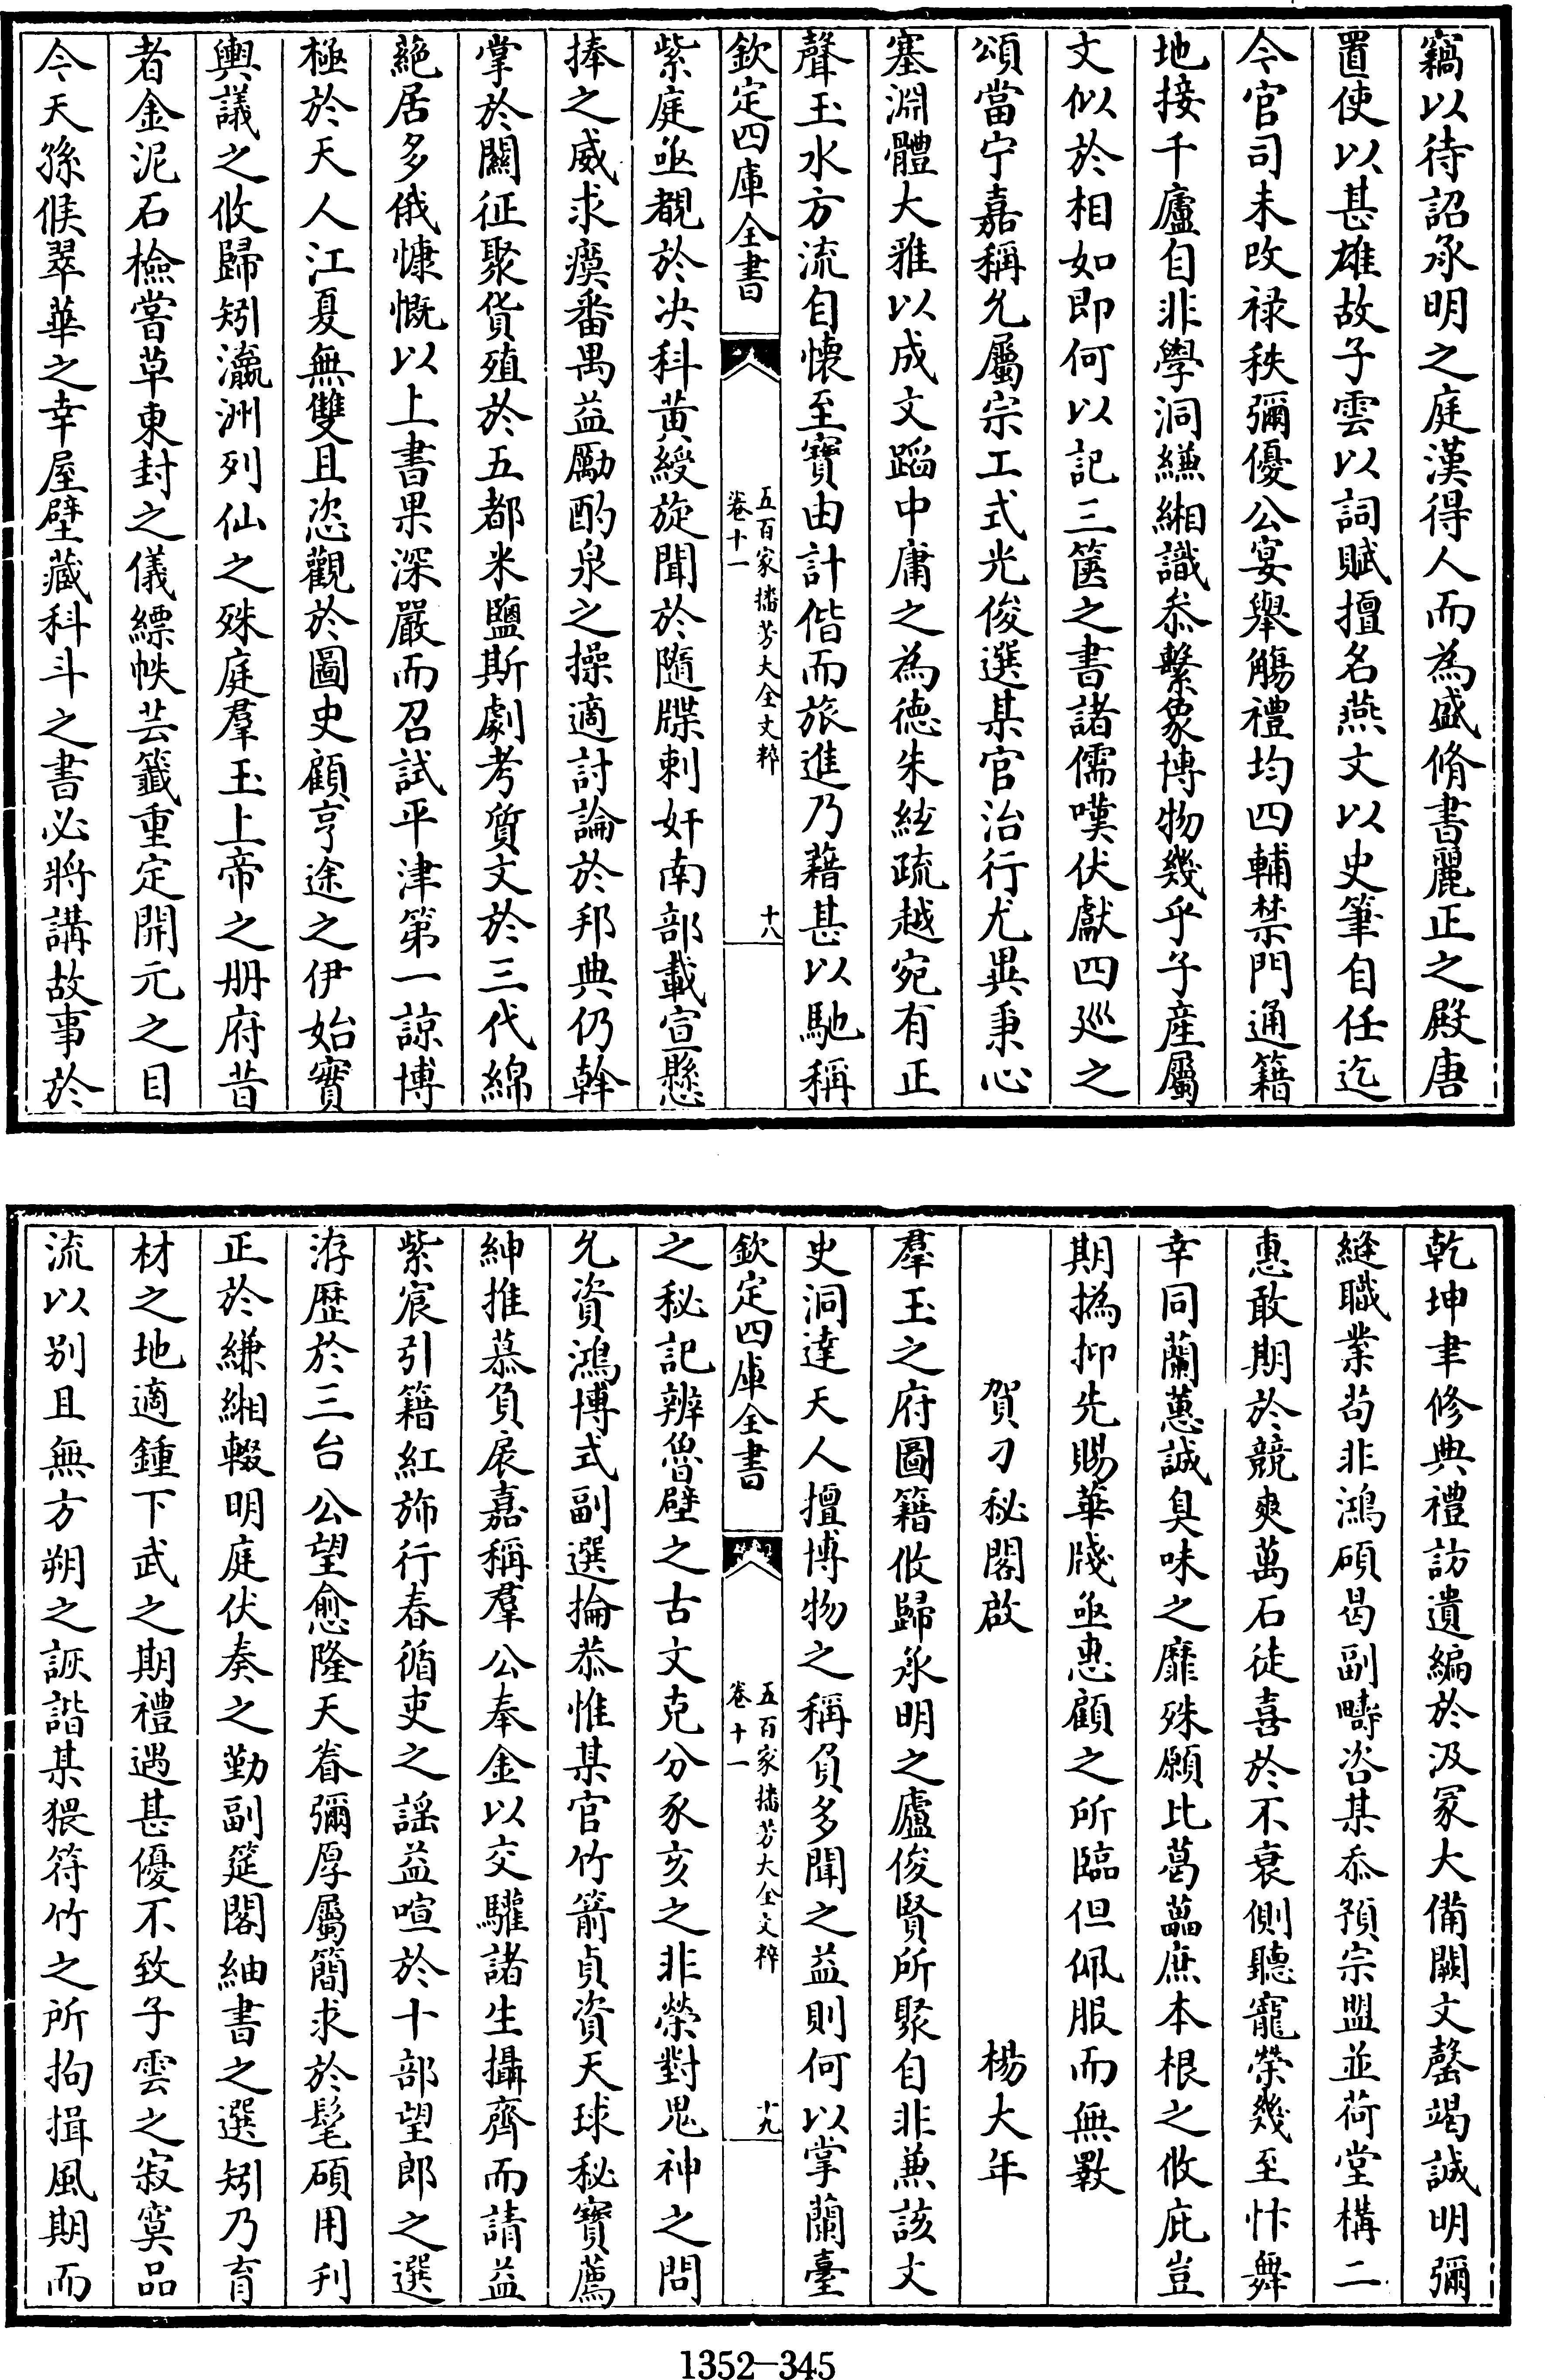 竊以待詔承明之庭漢得人而為盛脩書麗正之殿唐
置使以甚雄故子雲以詞賦擅名燕文以史筆自任迄
今官司未改祿秩彌優公宴舉觴禮均四輔禁門通籍
地接千廬自非學洞縑緗識叅繫象博物幾乎子産屬
文似於相如即何以記三篋之書諸儒嘆伏獻四廵之
頌當宁嘉稱允屬宗工式光俊選某官治行尤異秉心
塞淵體大雅以成文蹈中庸之為德朱絃疏越宛有正
聲玉水方流自懐至寳由計偕而旅進乃藉甚以馳稱
欽定四庫全書
五百家播芳大全文粹
卷十一
十八
紫庭亟覩於决科黄綬旋聞於隨牒剌奸南部載宣懸
捧之威求瘼番禺益勵酌泉之操適討論於邦典仍幹
掌於關征聚貨殖於五都米鹽斯劇考質文於三代綿
蕝居多俄慷慨以上書果深嚴而召試平津第一諒博
極於天人江夏無雙且恣觀於圖史顧亨途之伊始實
輿議之攸歸矧瀛洲列仙之殊庭羣玉上帝之册府昔
者金泥石檢嘗草東封之儀縹帙芸籤重定開元之目
今天孫候翠華之幸屋壁藏科斗之書必將講故事於
乾坤聿修典禮訪遺編於汲冡大備闕文罄竭誠明彌
縫職業苟非鴻碩曷副疇咨某忝預宗盟並荷堂構二
惠敢期於競爽萬石徒喜於不衰側聽寵榮幾至忭舞
幸同蘭蕙誠臭味之靡殊願比葛藟庶本根之攸庇豈
期撝抑先賜華牋亟惠顧之所臨但佩服而無斁
賀刁秘閣啟 楊大年
羣玉之府圖籍攸歸承明之廬俊賢所聚自非兼該文
史洞達天人擅博物之稱負多聞之益則何以掌蘭臺
欽定四庫全書
五百家播芳大全文粹
卷十一
十九
之秘記辨魯壁之古文克分豕亥之非榮對鬼神之問
允資鴻博式副選掄恭惟某官竹箭貞資天球秘寳薦
紳推慕負扆嘉稱羣公奉金以交驩諸生攝齊而請益
紫宸引籍紅斾行春循吏之謡益喧於十部望郎之選
洊歴於三台公望愈隆天眷彌厚屬簡求於髦碩用刋
正於縑緗輟明庭伏奏之勤副筵閣紬書之選矧乃育
材之地適鍾下武之期禮遇甚優不致子雲之寂寞品
流以别且無方朔之詼諧某猥符竹之所拘揖風期而
1352-345